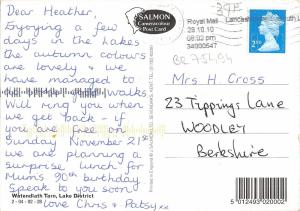 Dear Heather,
Enjoying a few
days in the Lakes
the autumn colours
are lovely & we
have managed to
walks
Will ring you when
we get back - if
you are free on
Sunday November 21st
we are planning a
surprise lunch for
Mum's 90th birthday
Speak to you soon
love Chris & Patsy xx
Watendlath Tarn, Lake District
2 - 04 - 02 - 08
SALMON
Cameracolour
Post Card
Royal Mail
29.10.10
08:02 pm
34000547
Mrs H. Cross
23 Tippings Lane
WOODLEY
Berkshire
5 012493 020002